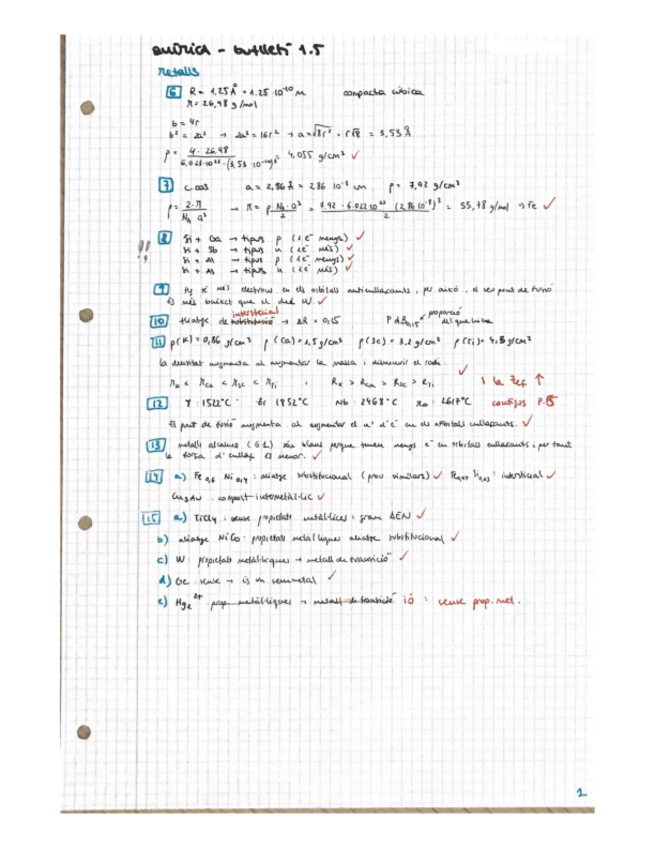 QUÍMICA - butlletí 1.5
Metalls
6 R = 1,25 Å = 1.25 · 10⁻¹⁰ m compacta cúbica
M = 26,98 g/mol
b = 4r
b² = 2a² → 2a² = 16r² → a = √8r² = r√8 = 3,53 Å
ρ = 4 · 26,98 / 6,023·10²³ · (3,53 · 10⁻⁸)³ = 4,055 g/cm³ ✓
7 c cos a = 2,86 Å = 2,86 10⁻⁸ cm ρ = 7,92 g/cm³
ρ = 2·M / NA a³ → M = ρ·NA·a³ / 2 = 7,92 · 6.022·10²³ (2,86·10⁻⁸)³ / 2 = 55,78 g/mol → Fe ✓
8 Si + Ga → tipus p (1e⁻ menys) ✓
Si + Sb → tipus n (1e⁻ més) ✓
→ tipus p (1e⁻ menys) ✓
Si + As → tipus n (1e⁻ més) ✓
9 Hg té més electrons en els orbitals antienllaçants, per això, el seu punt de fusió
és més baixet que el del W. ✓
intersticial
10 aliatge de substitució → ΔR = 0,15 proporció
11 ρ(K) = 0,86 g/cm³ ρ(Ca) = 1,5 g/cm³ ρ(Sc) = 3,2 g/cm³ ρ(Ti) = 4,5 g/cm³
la densitat augmenta al augmentar la massa i disminuir el radi. ✓
MK < MCa < MSc < MTi , RK > RCa > RSc > RTi i la Zef ↑
12 Y : 1522°C Zr 1852°C Nb : 2468°C Mo : 2617°C
El punt de fusió augmenta al augmentar el nº d'e⁻ en els orbitals enllaçants. ✓
13 metalls alcalins (G1) són blans perque tenen menys e⁻ en orbitals enllaçants, per tant
la força d'enllaç és menor. ✓
14 a) Fe0,6 Ni0,4 : aliatge substitucional (prou similars) ✓ : intersticial ✓
Cu3Au : compost intermetàl·lic ✓
15 a) TiCl4 : sense propietats metàl·liques : gran ΔEN ✓
b) aliatge NiCo : propietats metàl·liques aliatge substitucional ✓
c) W : propietats metàl·liques → metall de transició ✓
d) Ge sense → és un semimetal ✓
e) Hg2²⁺ prop. metàl·liques → metall de transició ió : sense prop. met.
1